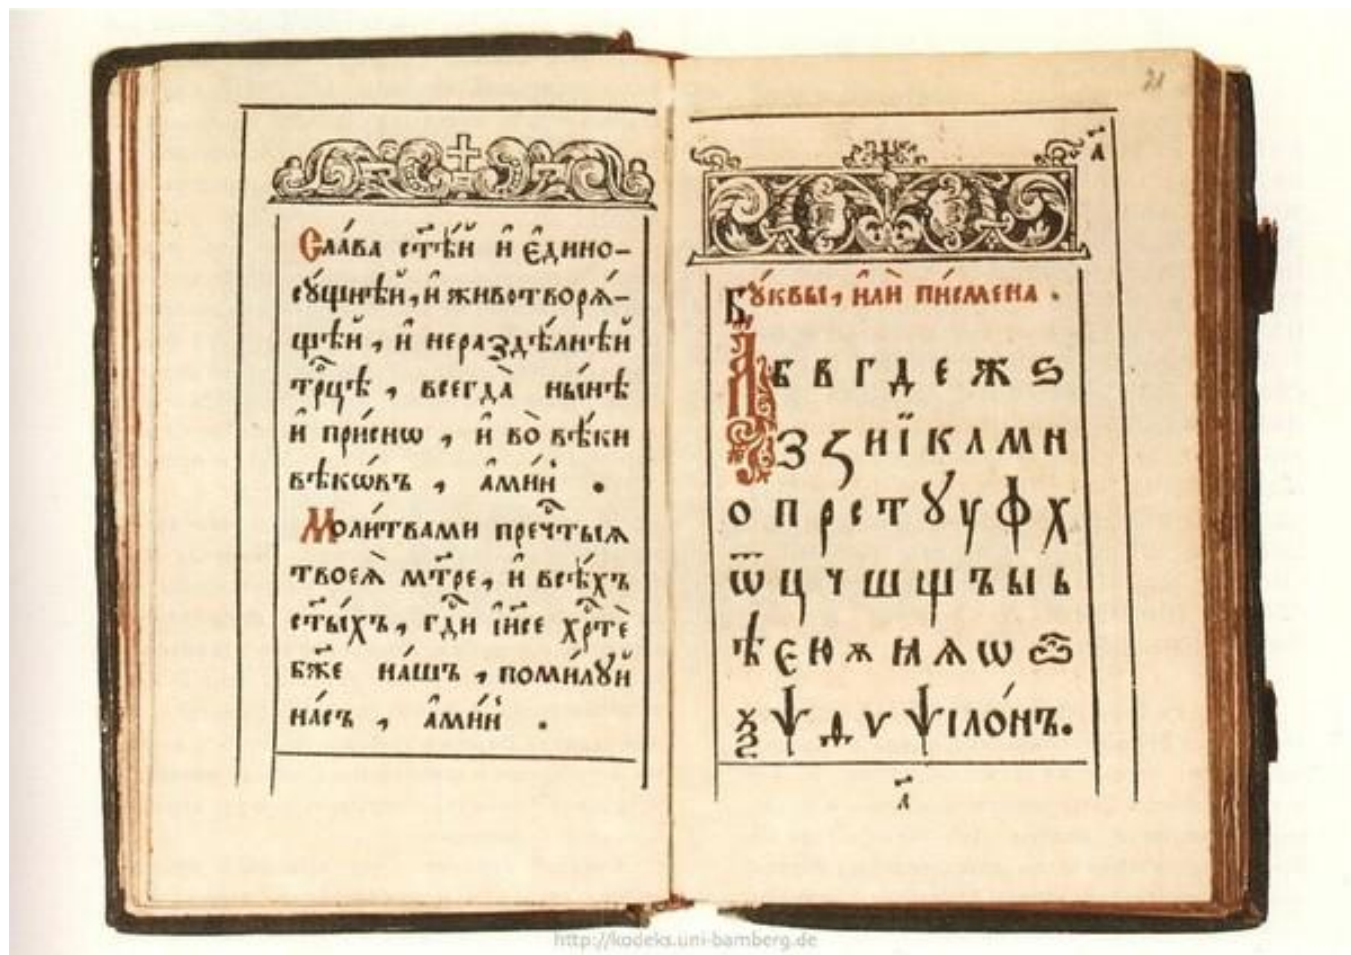 Сла́ва ст҃ѣй и҆ є҆дино-
сꙋ́щнѣй, и҆ животворѧ́-
щѣй, и҆ нераздѣ́лнѣй
трⷪ҇цѣ, всегда̀ ны́нѣ
и҆ при́снѡ, и҆ во̀ вѣ́ки
вѣкѡ́въ, а҆ми́нь.
Моли́твами пречⷭ҇тыѧ
твоеѧ̀ мт҃ре, и҆ всѣ́хъ
ст҃ы́хъ, гдⷭ҇и і҆и҃се хрⷭ҇тѐ
бж҃е на́шъ, поми́лꙋй
на́съ, а҆ми́нь.
21
а҃
Бꙋ́квы, и҆лѝ пи́смена.
А б в г д е ж ѕ
з ꙁ и ї к л м н
о п р с т ꙋ у ф х
ѿ ц ч ш щ ъ ы ь
ѣ є ю ѫ ꙗ ѧ ѡ
ѯ ѱ ѳ ѵ ѱіло́нъ.
а҃
http://kodeks.uni-bamberg.de